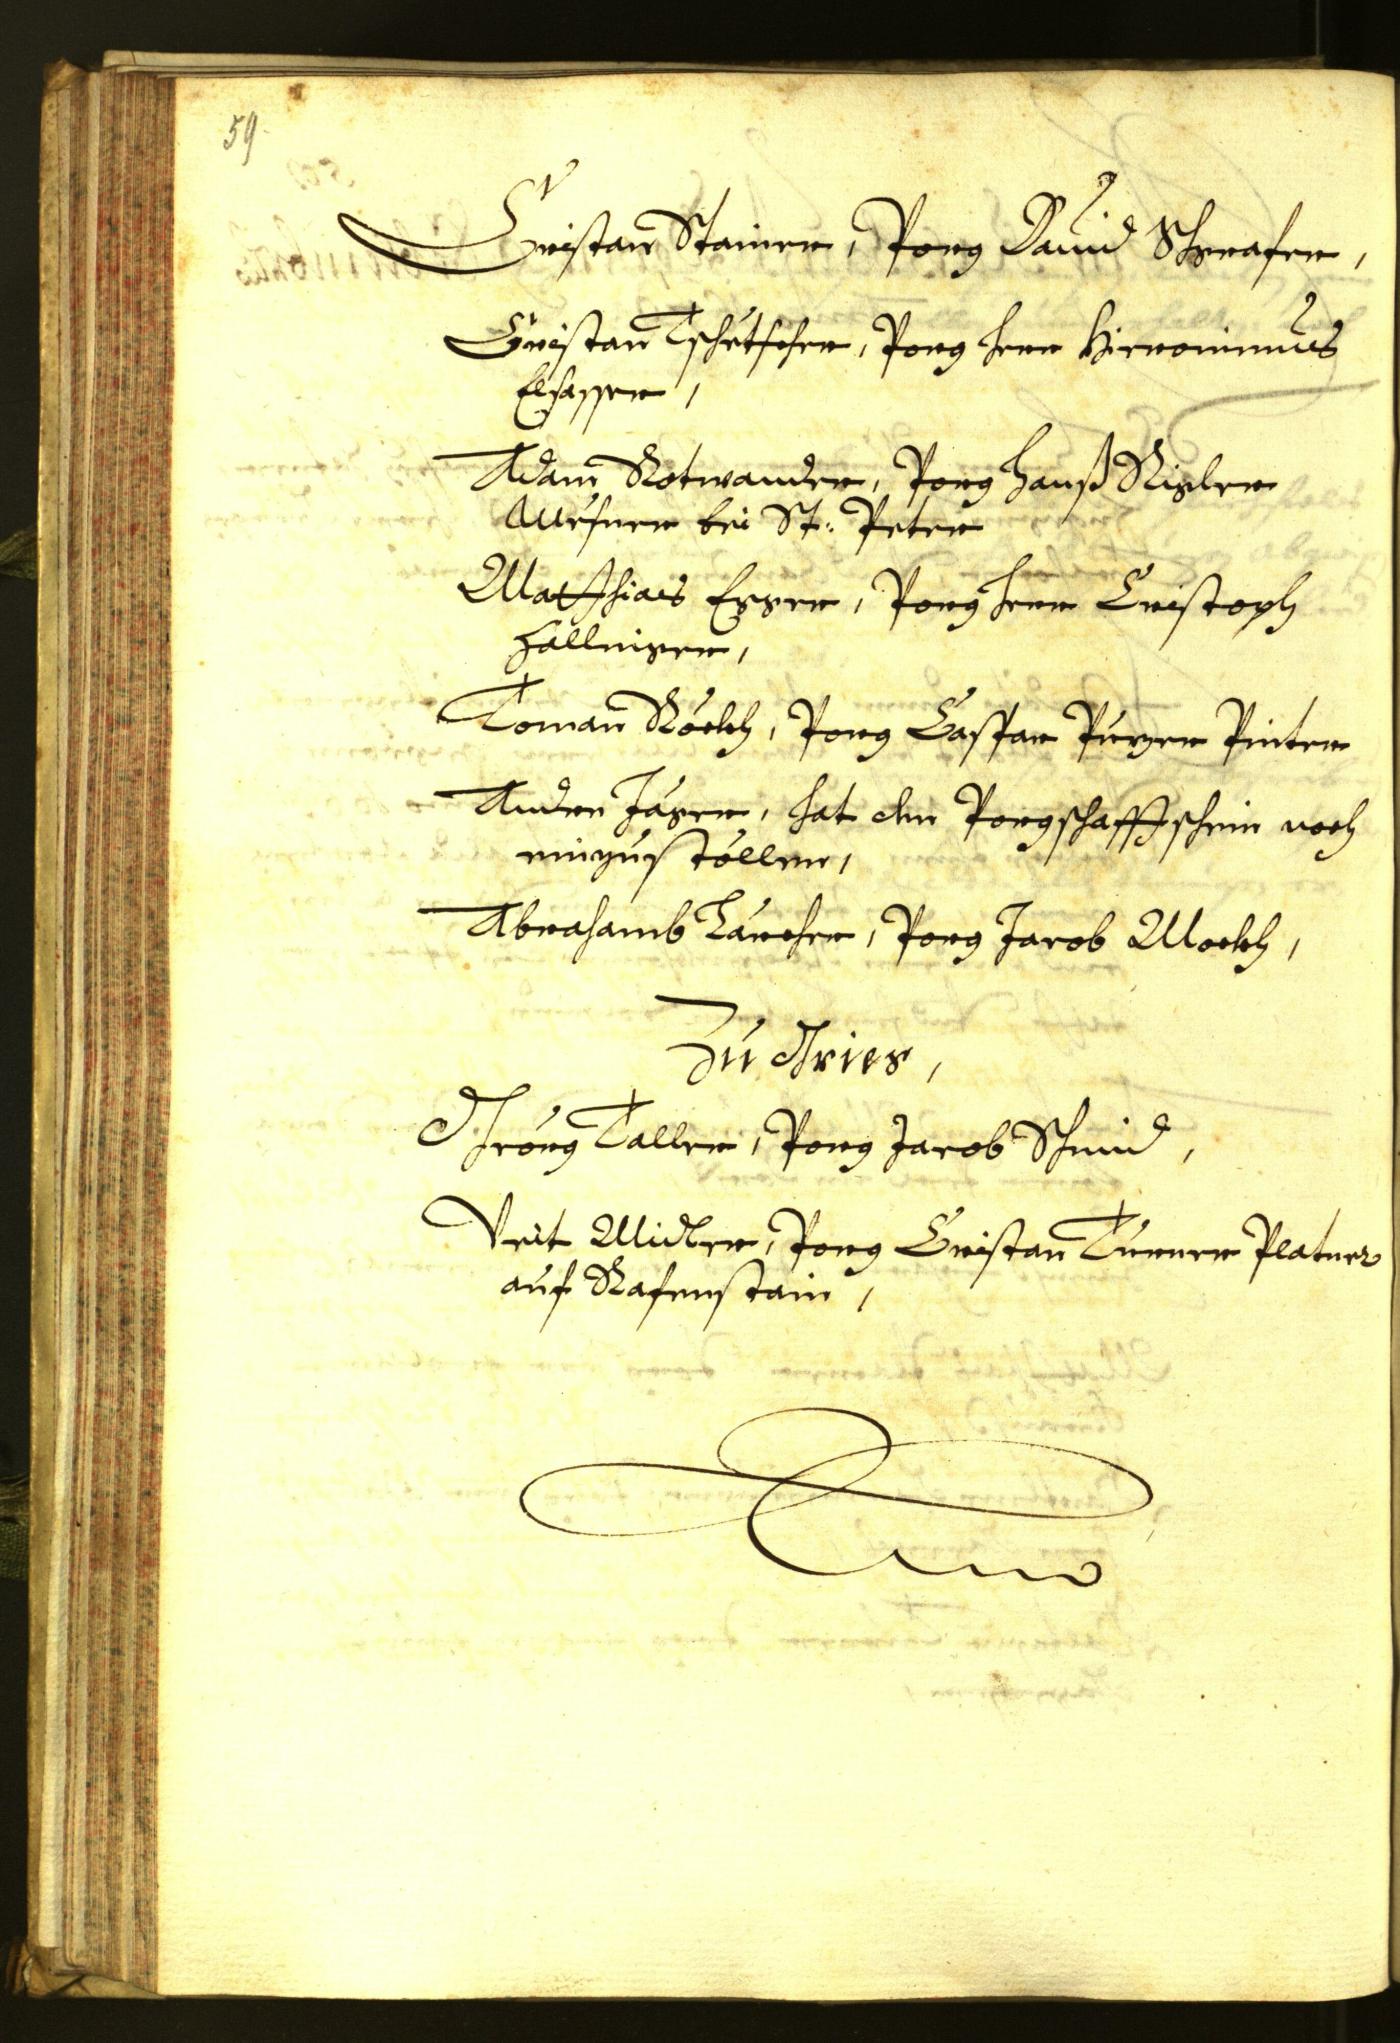 59
Cristan Stainer, Porg Dauid Schrafer,
Cristan Tschutscher, Porg Herr Hieronimus
Elsasser,
Adam Rotwander, Porg Hanß Rigler
Mesner bei St: Peter
Matthias Egger, Porg Herr Cristoph
Hallniger,
Toman Röckh, Porg Caspar Purger Pinter
Andre Jäger, hat den Porgschafftschein noch
einzustöllen,
Abrahamb Larcher, Porg Jacob Möckh,
Zu Gries,
Geörg Taller, Porg Jacob Schmid,
Veit Midler, Porg Cristan Turner Platner
auf Rafenstain,